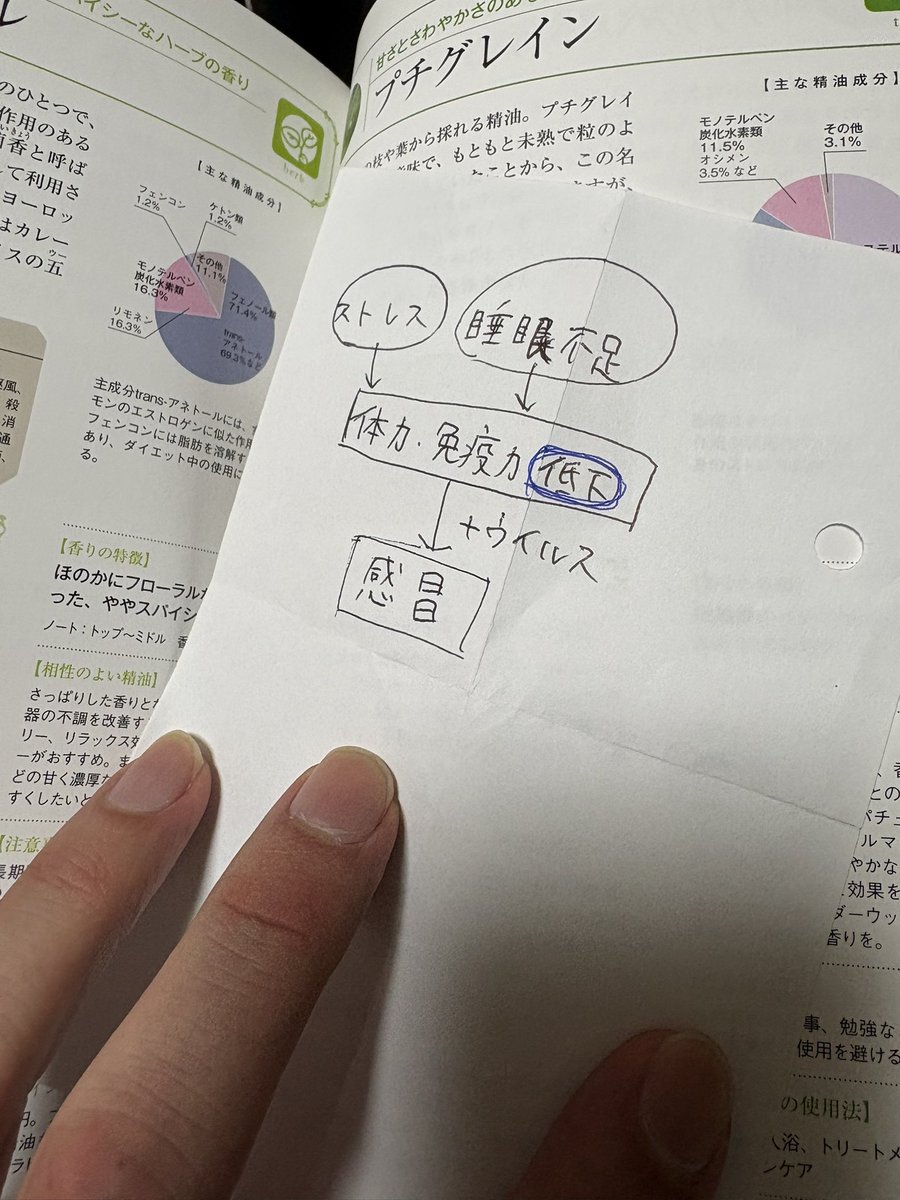 イシーなハーブの香り
のひとつで、
作用のある
いきょう
香と呼ば
して利用さ
ヨーロッ
はカレー
イスの五
ウー
herb
【主な精油成分】
フェンコン
1.2%
ケトン類
1.2%
その他
11.1%
モノテルペン
炭化水素類
16.3%
フェノール類
71.4%
リモネン
16.3%
trans-
アネトール
69.3%など
主成分trans-アネトールには、
モンのエストロゲンに似た作用
フェンコンには脂肪を溶解す
あり、ダイエット中の使用に
る。
風、
殺
消
通
【香りの特徴】
ほのかにフローラルな
った、ややスパイシ
ノート：トップ〜ミドル 香
【相性のよい精油】
さっぱりした香りと
器の不調を改善す
リー、リラックス効
ーがおすすめ。ま
どの甘く濃厚な
すくしたいと
【注意
長期
甘さとさわやかさのあ
プチグレイン
枝や葉から採れる精油。プチグレイ
味で、もともと未熟で粒のよ
ことから、この名
ますが、
【主な精油成分】
モノテルペン
炭化水素類
11.5%
オシメン
3.5% など
その他
3.1%
ステル
ストレス
睡眠不足
体力・免疫力低下
+ウイルス
感冒
、香
との
パチュ
ルマ
やかな
効果を
ダーウッ
香りを。
事、勉強な
使用を避ける
の使用法】
浴、トリートメ
ンケア